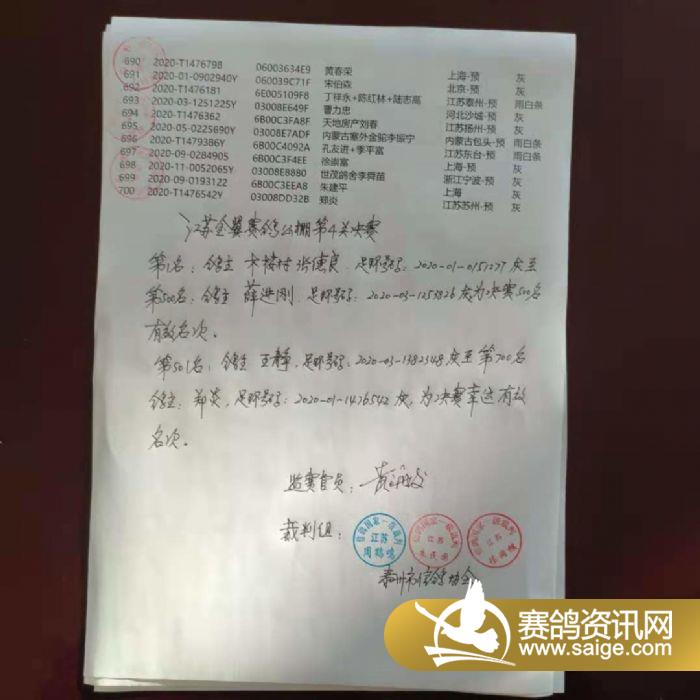 690 2020-T1476798 06003634E9 黄春荣 上海-预 灰
691 2020-01-0902940Y 060039C71F 宋伯森 北京-预 灰
692 2020-T1476181 6E005109F8 丁祥永+陈红林+陆志高 江苏泰州-预 雨白条
693 2020-03-1251225Y 03008E649F 曹力忠 河北沙城-预 灰
694 2020-T1476362 6B00C3FA8F 天地房产刘春 江苏扬州-预 灰
695 2020-05-0225690Y 03008E7ADF 内蒙古塞外金鸵李振宁 内蒙古包头-预 雨白条
696 2020-T1479386Y 6B00C4092A 孔友进+李平富 江苏东台-预 雨白条
697 2020-09-0284905 6B00C3F4EE 徐崇富 上海-预 灰
698 2020-11-0052065Y 03008E8880 世茂鸽舍李舜苗 浙江宁波-预 灰
699 2020-09-0193122 6B00C3EEA8 朱建平 上海 灰
700 2020-T1476542Y 03008DD32B 郑炎 江苏苏州-预 灰
江苏金翼赛鸽公棚第4关决赛
第1名：鸽主 张德良，足环号码：2020-01-0151277 灰至
第500名：鸽主 薛进刚，足环号码：2020-03-1253826 灰为决赛500名
有效名次。
第501名：鸽主 王静，足环号码：2020-03-1382348 灰至第700名
鸽主：郑炎，足环号码：2020-01-1476542 灰，为决赛幸运有效
名次。
监赛官员：
裁判组：
信鸽国家一级裁判 江苏
江苏
江苏
信鸽协会
赛鸽资讯网
www.saige.com